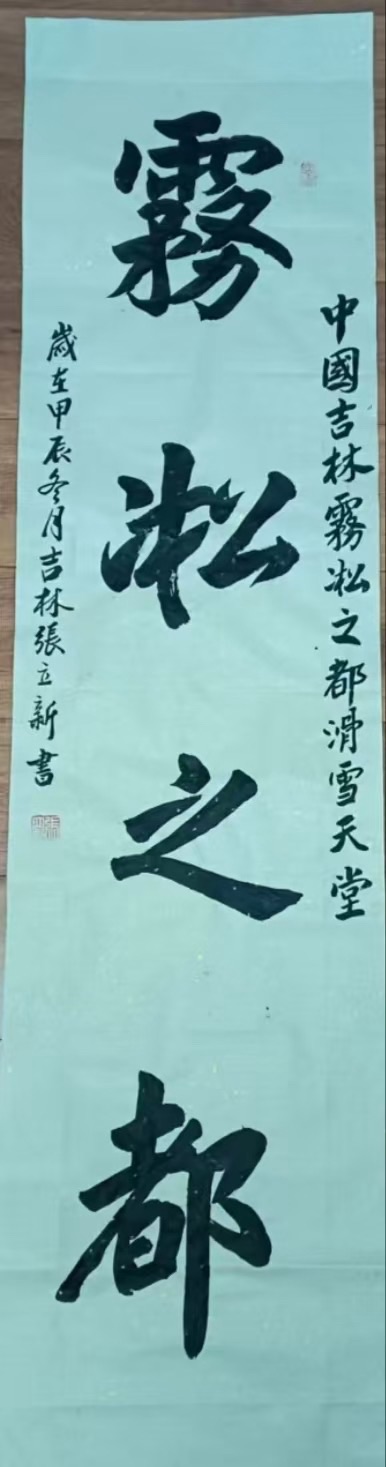 中國吉林霧凇之都滑雪天堂
霧凇之都
歲在甲辰冬月吉林張立新書